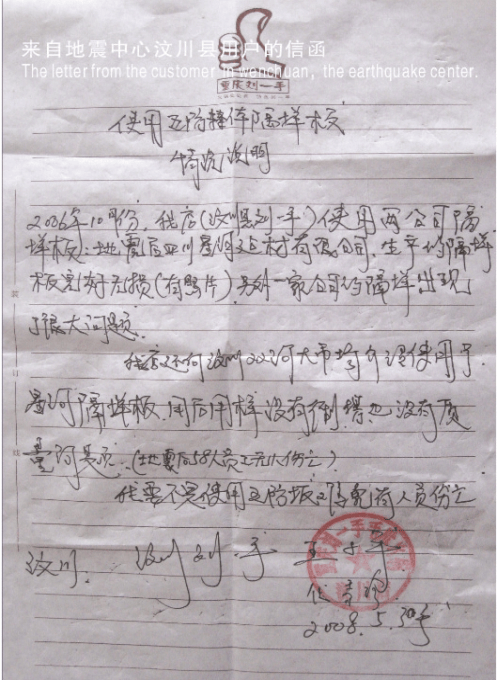 来自地震中心汶川县用户的信函
The letter from the customer in wenchuan, the earthquake center.
重庆刘一手
使用五防整体隔墙板
情况说明
2006年10月份,我店(汶川县刘一手)使用两公司隔
墙板:地震后四川星河建材有限公司,生产的隔墙
板完好无损(有照片)另外一家公司的隔墙出现
了很大问题.
我店还向汶川双河大市场介绍使用了
星河隔墙板,用后同样没有倒塌也没有质
量问题.(地震后58人员工无人伤亡)
我要不是使用五防板
人员伤亡
汶川. 汶川刘一手
2008.5.30